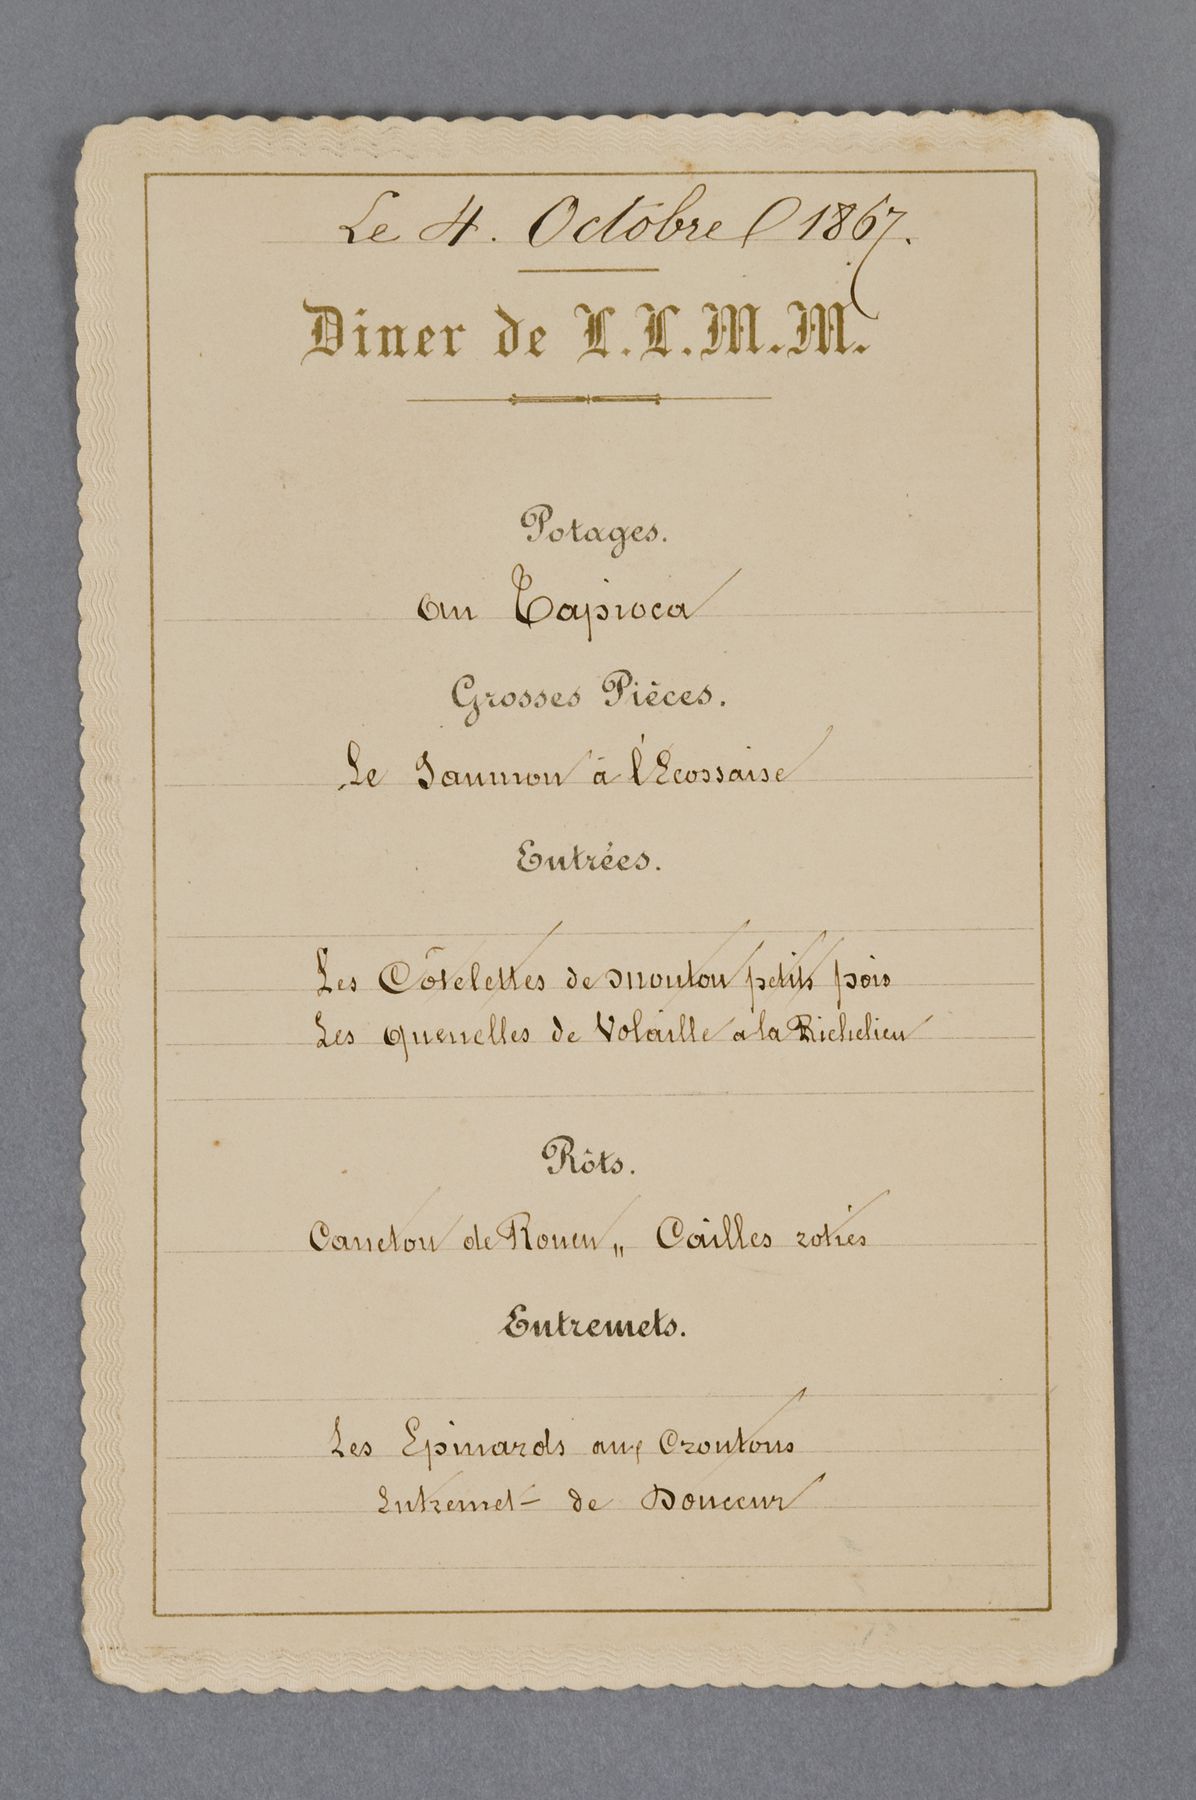 Le 4. Octobre 1867.
Diner de L.L.M.M.
Potages.
au Tapioca
Grosses Pièces.
Le Saumon à l'Ecossaise
Entrées.
Les Côtelettes de mouton petits pois
Les quenelles de Volaille a la Richelieu
Rôts.
Caneton de Rouen „ Cailles roties
Entremets.
Les Epinards aux Croutons
Entremet de Douceur